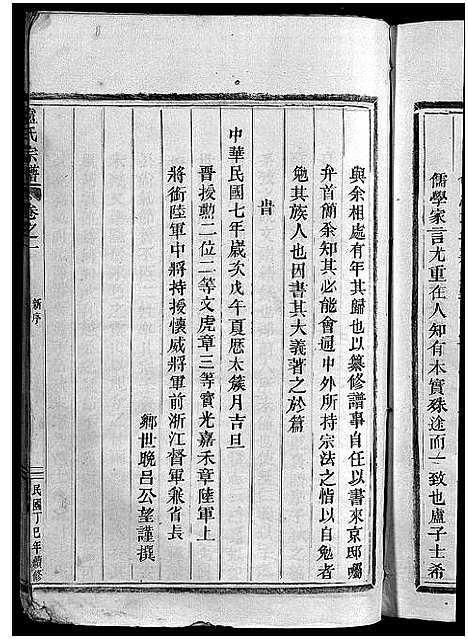 儒學家言尤重在人知有本實殊途而一致也盧子士希
與余相處有年其歸也以纂修譜事自任以書來京邸囑
弁首簡余知其必能會通中外所持宗法之悟以自勉者
勉其族人也因書其大義著之於篇
旹
中華民國七年歲次戊午夏曆太簇月吉旦
晋授勳二位二等文虎章三等寶光嘉禾章陸軍上
將銜陸軍中將特授懷威將軍前浙江督軍兼省長
鄉世晚呂公望謹撰
盧氏宗譜
卷之一
新序
民國丁巳年續修